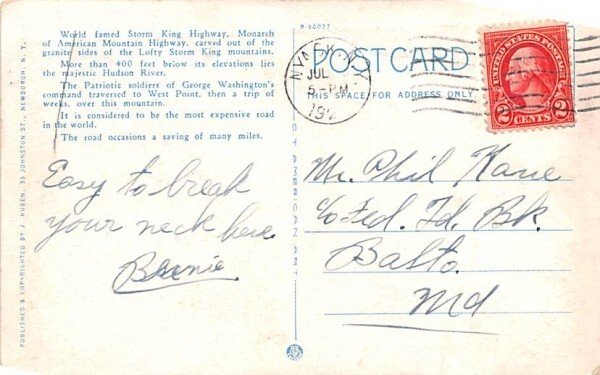 World famed Storm King Highway, Monarch
of American Mountain Highway, carved out of the
granite sides of the Lofty Storm King mountains.
More than 400 feet below its elevations lies
the majestic Hudson River.
The Patriotic soldiers of George Washington's
command traversed to West Point, then a trip of
weeks, over this mountain.
It is considered to be the most expensive road
in the world.
The road occasions a saving of many miles.
Easy to break
your neck here.
Bernie
PUBLISHED & COPYRIGHTED BY J. RUBEN, 33 JOHNSTON ST., NEWBURGH, N. Y.
R-90877
POST CARD
THIS SPACE FOR ADDRESS ONLY
NYACK, N.Y.
JUL
5-PM
UNITED STATES POSTAGE
2 CENTS 2
Mr. Phil Kane
c/o Fed. Ld. Bk.
Balto.
Md